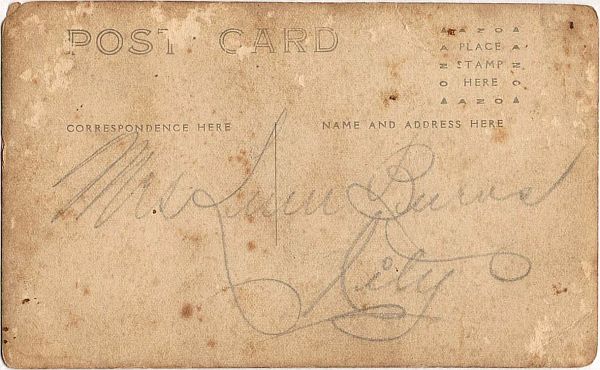 POST CARD
AZO
PLACE
STAMP
HERE
AZO
CORRESPONDENCE HERE
NAME AND ADDRESS HERE
Mrs Burns
City